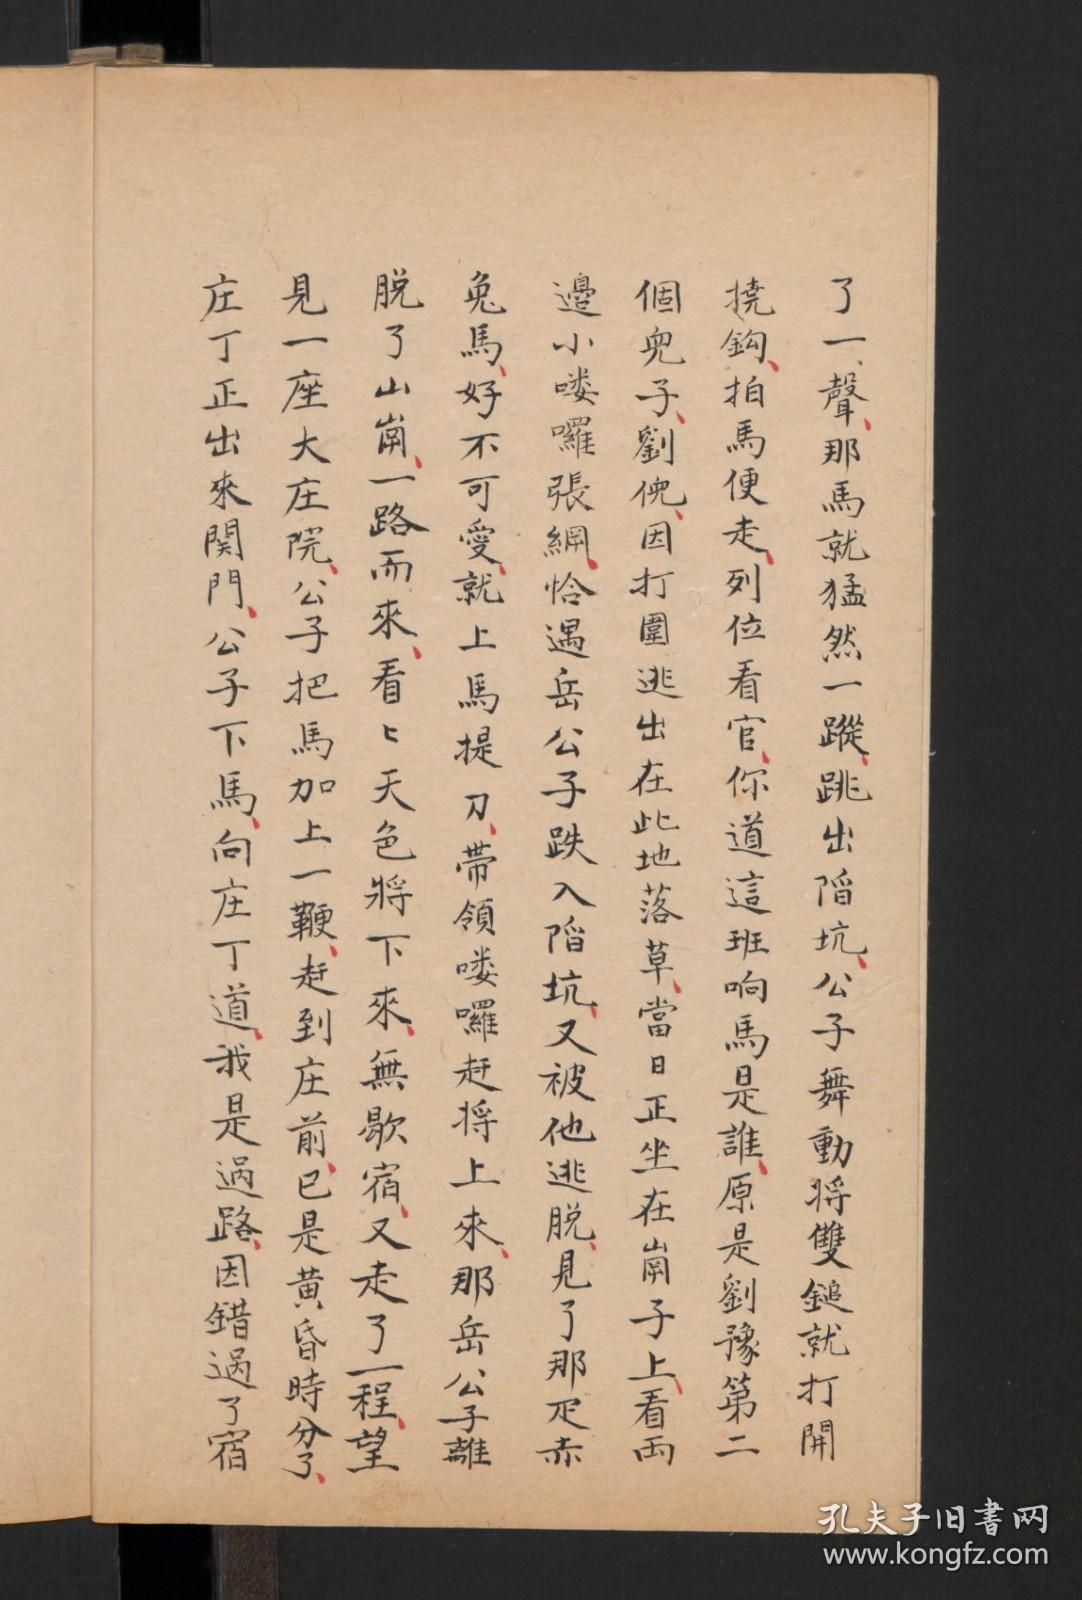 了一聲、那馬就猛然一蹤、跳出陷坑、公子舞動将雙鎚就打開
撓鈎、拍馬便走、列位看官、你道這班响馬是誰、原是劉豫第二
個兒子、劉倪、因打圍逃出在此地落草、當日正坐在崗子上、看両
邊小喽囉張網、恰遇岳公子跌入陷坑、又被他逃脱、見了那疋赤
兔馬、好不可愛、就上馬提刀、帶領喽囉赶将上來、那岳公子離
脱了山崗、一路而來、看匕天色將下來、無歇宿、又走了一程、望
見一座大庄院、公子把馬加上一鞭、赶到庄前、已是黄昏時分了、
庄丁正出來関門、公子下馬、向庄丁道、我是過路、因錯過了宿
孔夫子旧書网
www.kongfz.com